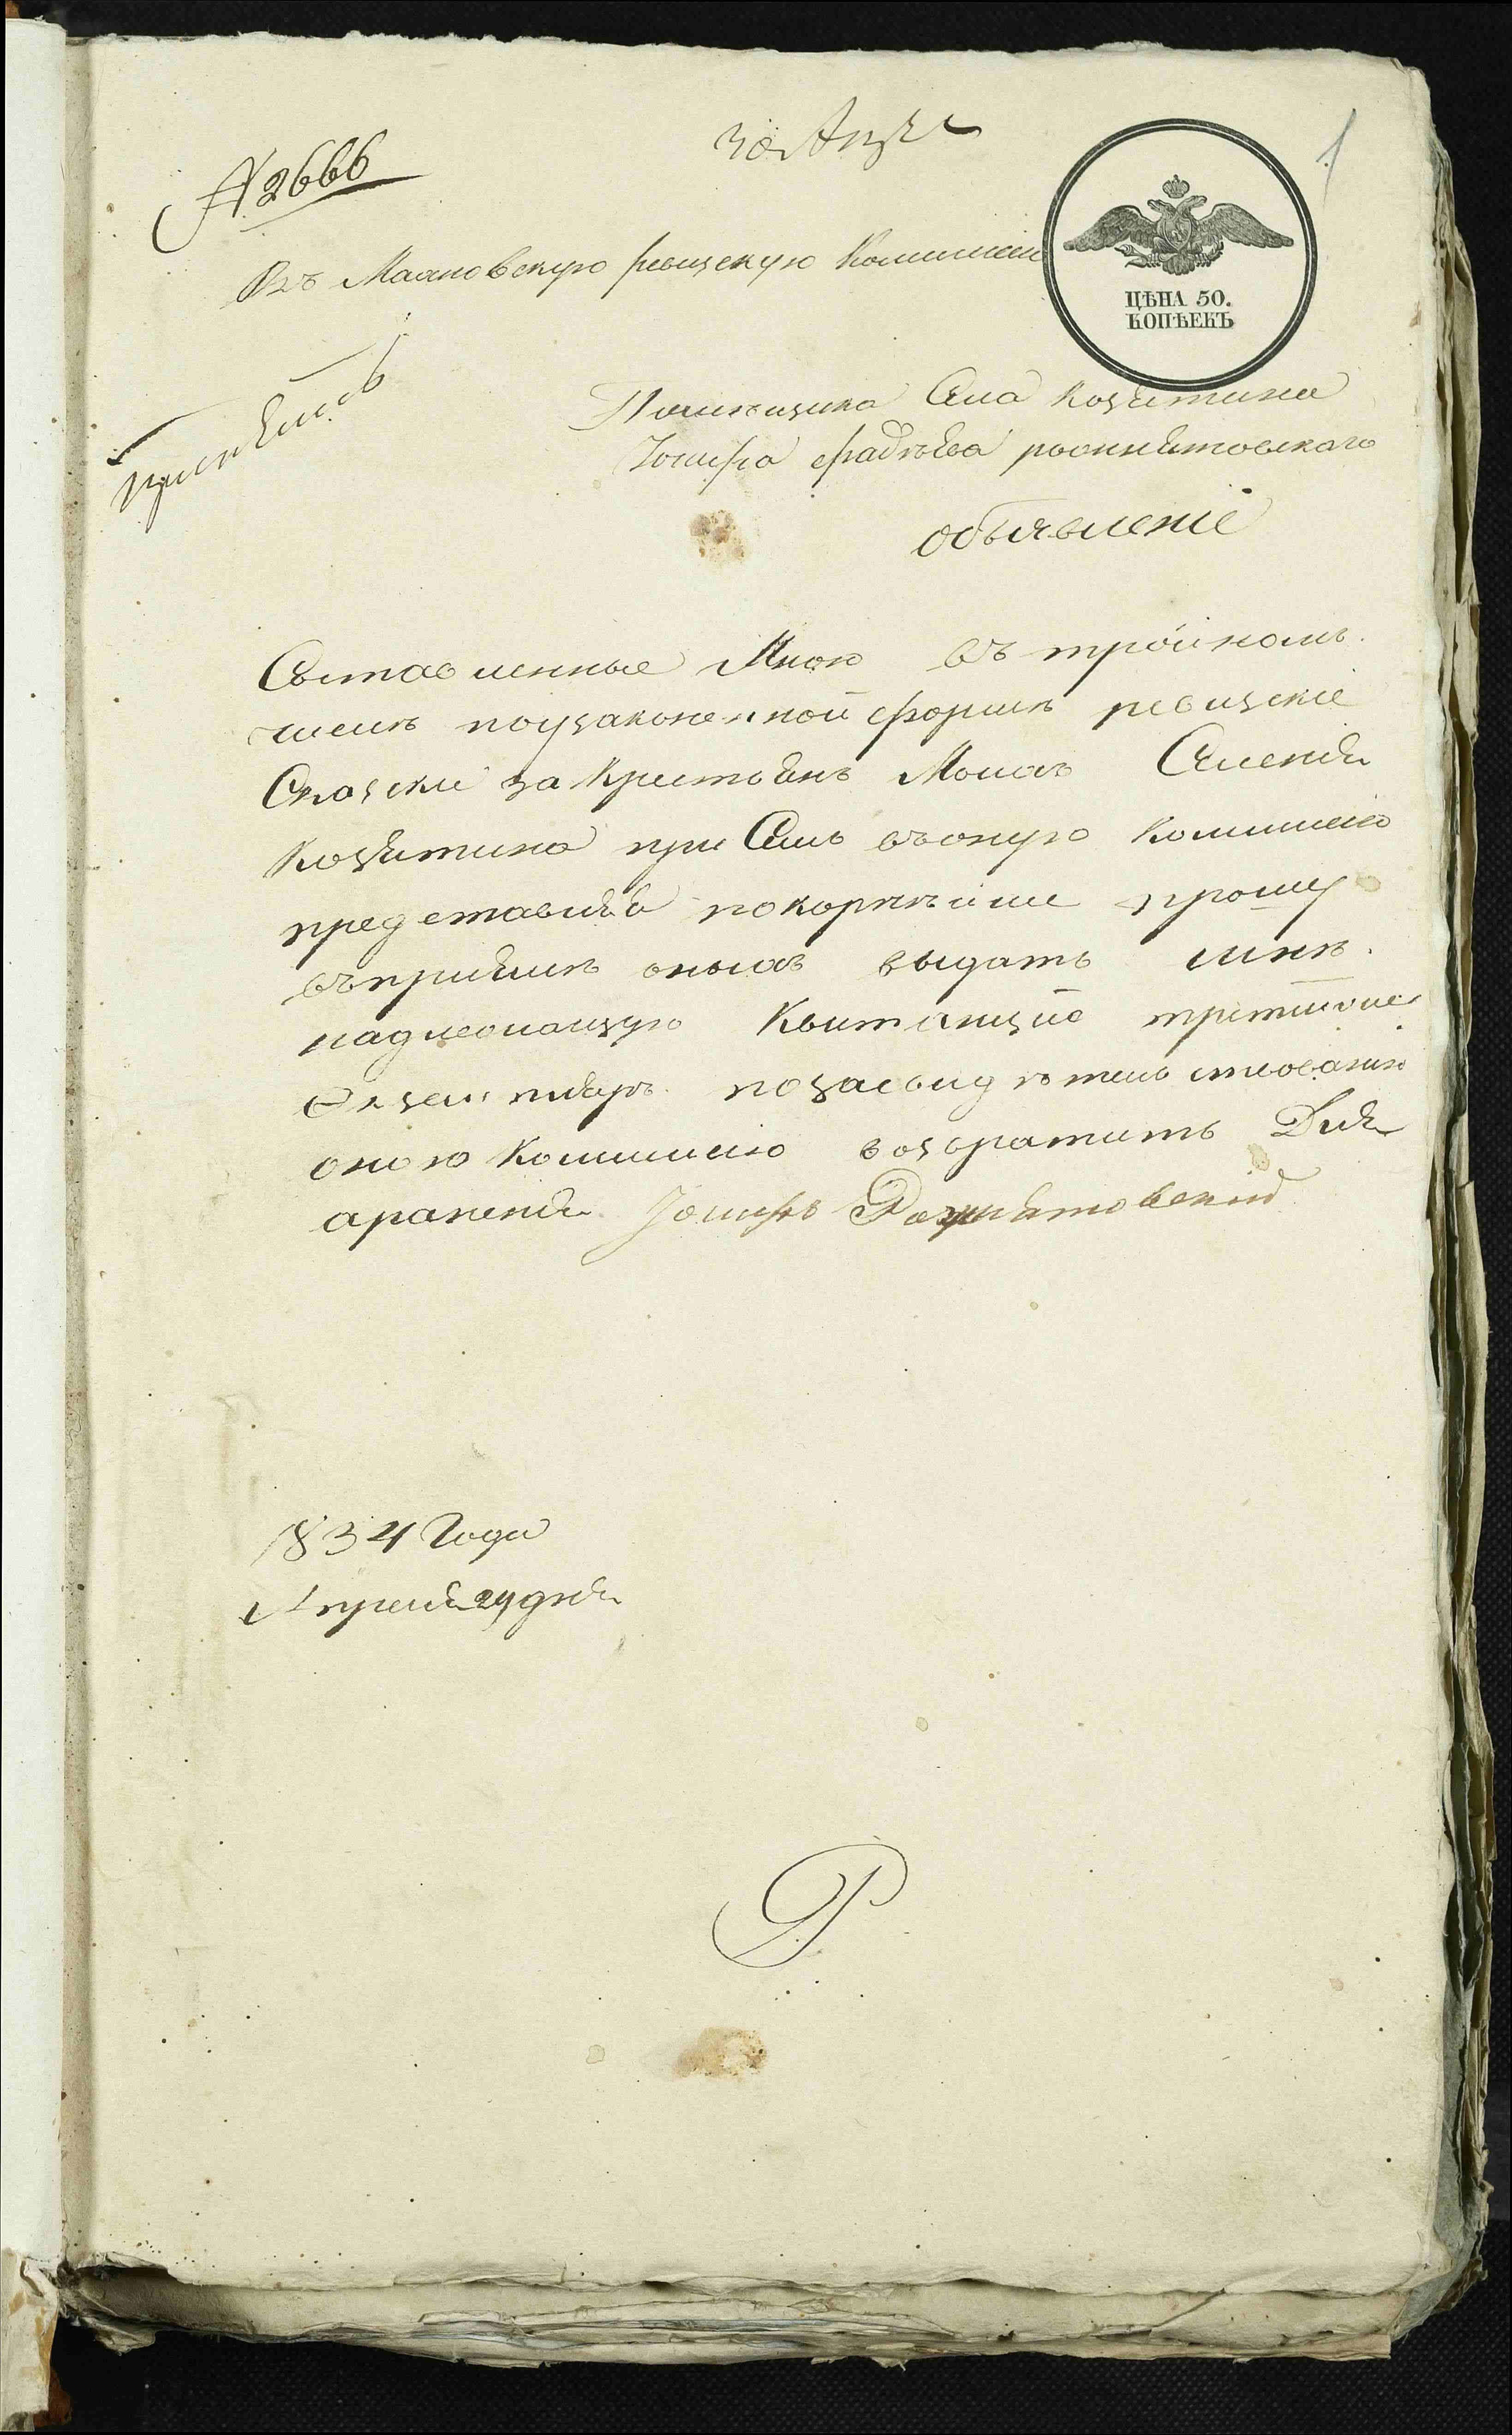 № 2666
30 Апр
1
Въ Махновскую ревизскую Коммисию
ЦѢНА 50.
КОПѢЕКЪ
Помещика Села Козятина
Іосифа Фадѣева рожнятовскаго
объявленіе
Съставленные Мною въ тройномъ
числѣ поузаконенной формѣ ревизскіе
Сказски за крестьянъ Моихъ Селенія
Козятина при Семъ въоную Коммисію
представляя покорнѣйше прошу
въпріемѣ оныхъ выдать мнѣ
надлежащую Квитанцию третій же
Экземпляръ позасвидѣтельствованію
оною Коммисіею возвратить Для
храненія Іосифъ Рожнятовскій
1834 Года
Апреля 29 дня